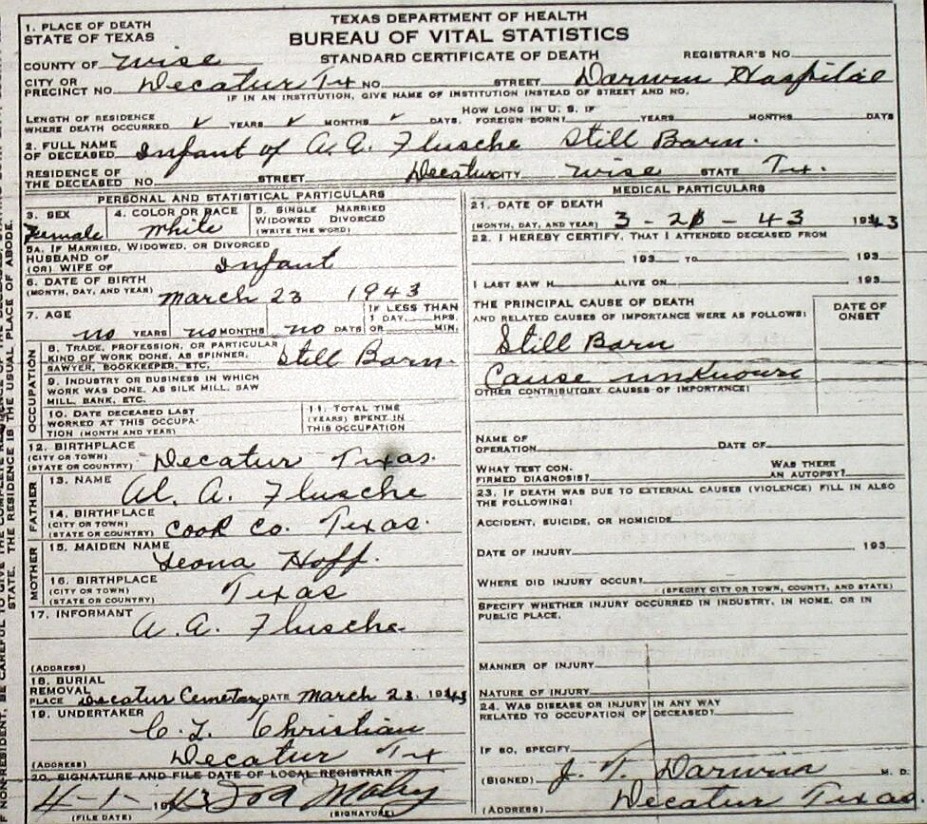 TEXAS DEPARTMENT OF HEALTH
BUREAU OF VITAL STATISTICS
STANDARD CERTIFICATE OF DEATH
REGISTRAR'S NO.
1. PLACE OF DEATH
STATE OF TEXAS
COUNTY OF Wise
CITY OR PRECINCT NO. Decatur Tx NO. STREET Darwin Hospital
IF IN AN INSTITUTION, GIVE NAME OF INSTITUTION INSTEAD OF STREET AND NO.
LENGTH OF RESIDENCE WHERE DEATH OCCURRED ✓ YEARS ✓ MONTHS ✓ DAYS. HOW LONG IN U. S. IF FOREIGN BORN? YEARS MONTHS DAYS
2. FULL NAME OF DECEASED Infant of A. A. Flusche Still Born.
RESIDENCE OF THE DECEASED NO. STREET Decatur CITY Wise STATE Tx.
PERSONAL AND STATISTICAL PARTICULARS
3. SEX Female
4. COLOR OR RACE White
5. SINGLE MARRIED WIDOWED DIVORCED (WRITE THE WORD)
5A. IF MARRIED, WIDOWED, OR DIVORCED
HUSBAND OF
(OR) WIFE OF Infant
6. DATE OF BIRTH
(MONTH, DAY, AND YEAR) March 23 1943
7. AGE no YEARS no MONTHS no DAYS IF LESS THAN 1 DAY HRS. OR MIN.
OCCUPATION
8. TRADE, PROFESSION, OR PARTICULAR
KIND OF WORK DONE, AS SPINNER,
SAWYER, BOOKKEEPER, ETC. Still Born.
9. INDUSTRY OR BUSINESS IN WHICH
WORK WAS DONE, AS SILK MILL, SAW
MILL, BANK, ETC.
10. DATE DECEASED LAST
WORKED AT THIS OCCUPA-
TION (MONTH AND YEAR)
11. TOTAL TIME
(YEARS) SPENT IN
THIS OCCUPATION
12. BIRTHPLACE
(CITY OR TOWN)
(STATE OR COUNTRY) Decatur Texas.
FATHER
13. NAME Al. A. Flusche
14. BIRTHPLACE
(CITY OR TOWN)
(STATE OR COUNTRY) Cook Co. Texas.
MOTHER
15. MAIDEN NAME Leona Hoff.
16. BIRTHPLACE
(CITY OR TOWN)
(STATE OR COUNTRY) Texas
17. INFORMANT A. A. Flusche
(ADDRESS)
18. BURIAL
REMOVAL
PLACE Decatur Cemetary DATE March 23. 1943
19. UNDERTAKER C. L. Christian
(ADDRESS) Decatur Tx
20. SIGNATURE AND FILE DATE OF LOCAL REGISTRAR
4-1- 1943
(FILE DATE) (SIGNATURE)
MEDICAL PARTICULARS
21. DATE OF DEATH
(MONTH, DAY, AND YEAR) 3 - 43 1943
22. I HEREBY CERTIFY, THAT I ATTENDED DECEASED FROM
193 TO 193
I LAST SAW H ALIVE ON 193
THE PRINCIPAL CAUSE OF DEATH
AND RELATED CAUSES OF IMPORTANCE WERE AS FOLLOWS:
DATE OF ONSET
Still Born
Cause unknown
OTHER CONTRIBUTORY CAUSES OF IMPORTANCE:
NAME OF
OPERATION DATE OF
WHAT TEST CON-
FIRMED DIAGNOSIS? WAS THERE AN AUTOPSY?
23. IF DEATH WAS DUE TO EXTERNAL CAUSES (VIOLENCE) FILL IN ALSO
THE FOLLOWING:
ACCIDENT, SUICIDE, OR HOMICIDE
DATE OF INJURY 193
WHERE DID INJURY OCCUR?
(SPECIFY CITY OR TOWN, COUNTY, AND STATE)
SPECIFY WHETHER INJURY OCCURRED IN INDUSTRY, IN HOME, OR IN
PUBLIC PLACE.
MANNER OF INJURY
NATURE OF INJURY
24. WAS DISEASE OR INJURY IN ANY WAY
RELATED TO OCCUPATION OF DECEASED?
IF SO, SPECIFY
(SIGNED) J. T. Darwin M. D.
(ADDRESS) Decatur Texas.
STATE. THE RESIDENCE IS THE USUAL PLACE OF ABODE.